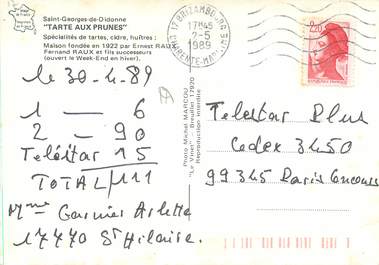 Saint-Georges-de-Didonne
"TARTE AUX PRUNES"
Spécialités de tartes, cidre, huîtres :
Maison fondée en 1922 par Ernest RAUX
Fernand RAUX et fils successeurs
(ouvert le Week-End en hiver).
le 30-4.89
1 — 6
2 — 90
Teléstar 15
TOTAL/111
Mme Garnier Arlette
17770 St Hilaire.
Photo Michel MARCOU
"Le Vinet" - Breuillet 17920
Reproduction interdite
17 BRIZAMBOURG
17H45
2-5
1989
CHARENTE-MARITIME
2,20
Telestar Plus
Cedex 3450
99345 Paris Concours